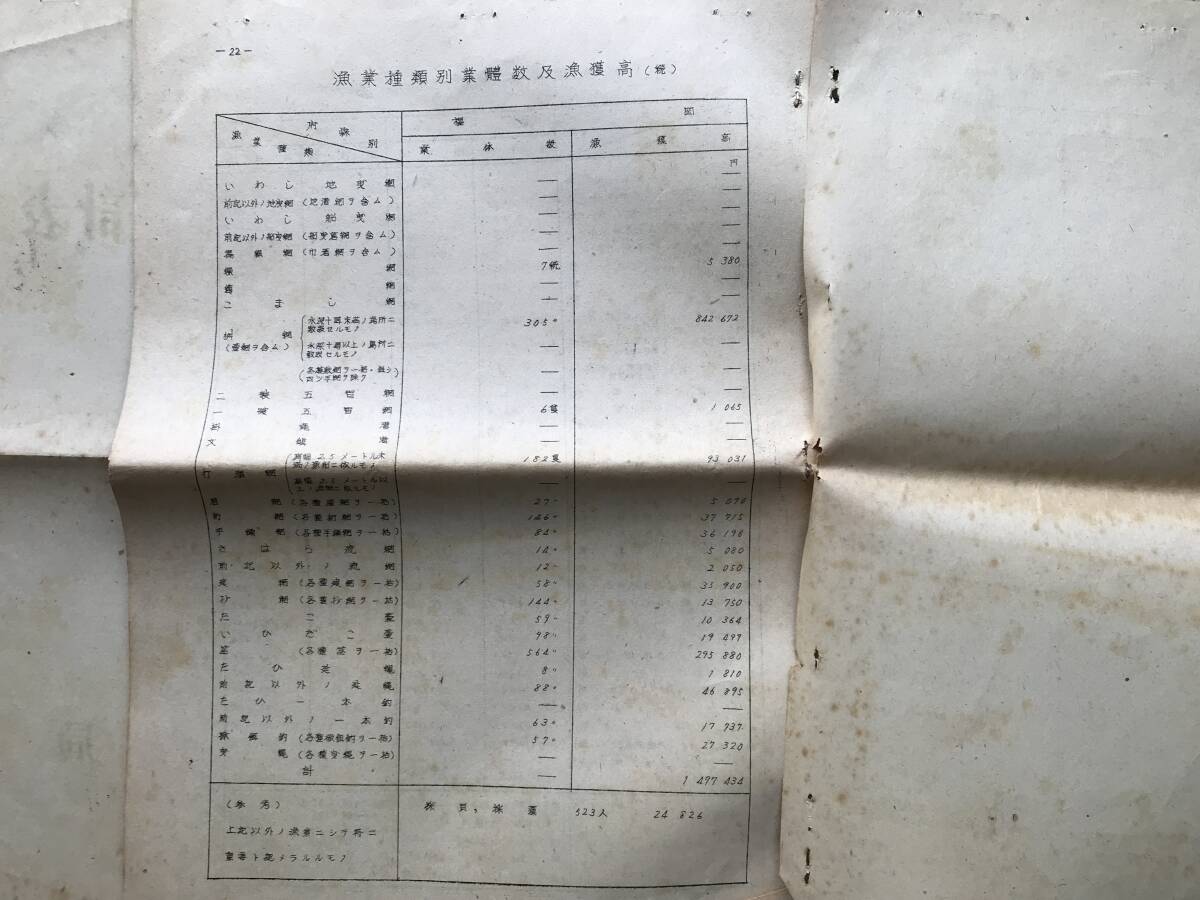 —22—
漁業種類別業體数及漁獲高(続)
府縣別 福岡
漁業種類 業体数 漁獲高
円
いわし地曳網 — —
前記以外ノ地曳網(地漕網ヲ含ム) — —
いわし船曳網 — —
前記以外ノ船曳網 — —
網 7統 5 380
網 — —
こましし網 — —
網 水深十尋未満ノ場所ニ敷設セルモノ 305〃 842 672
(壺網ヲ含ム) 水深十尋以上ノ場所ニ敷設セルモノ — —
— —
二艘五智網 — —
一艘五智網 6隻 1 065
— —
— —
打瀬網 肩幅2.5メートル未満ノ漁船ニ依ルモノ 182隻 93 031
肩幅2.5メートル以上ノ漁船ニ依ルモノ
網(各種 網ヲ一括) 27〃 5 070
網(各種 網ヲ一括) 146〃 37 715
手繰網(各種手繰網ヲ一括) 84〃 36 198
さはら流網 14〃 5 080
前記以外ノ流網 12〃 2 050
網(各種 網ヲ一括) 58〃 35 900
抄網(各種抄網ヲ一括) 144〃 13 750
たこ壷 59〃 10 364
いひだこ壷 98〃 19 497
筌(各種筌ヲ一括) 564〃 295 880
たひ延縄 8〃 1 810
前記以外ノ延縄 88〃 46 895
たひ一本釣 — —
前記以外ノ一本釣 63〃 17 737
釣 57〃 27 320
空縄(各種空縄ヲ一括) — —
計 — 1 497 434
(参考) 採貝,採藻 523人 24 826
上記以外ノ漁業ニシテ特ニ
重要ト認メラルルモノ